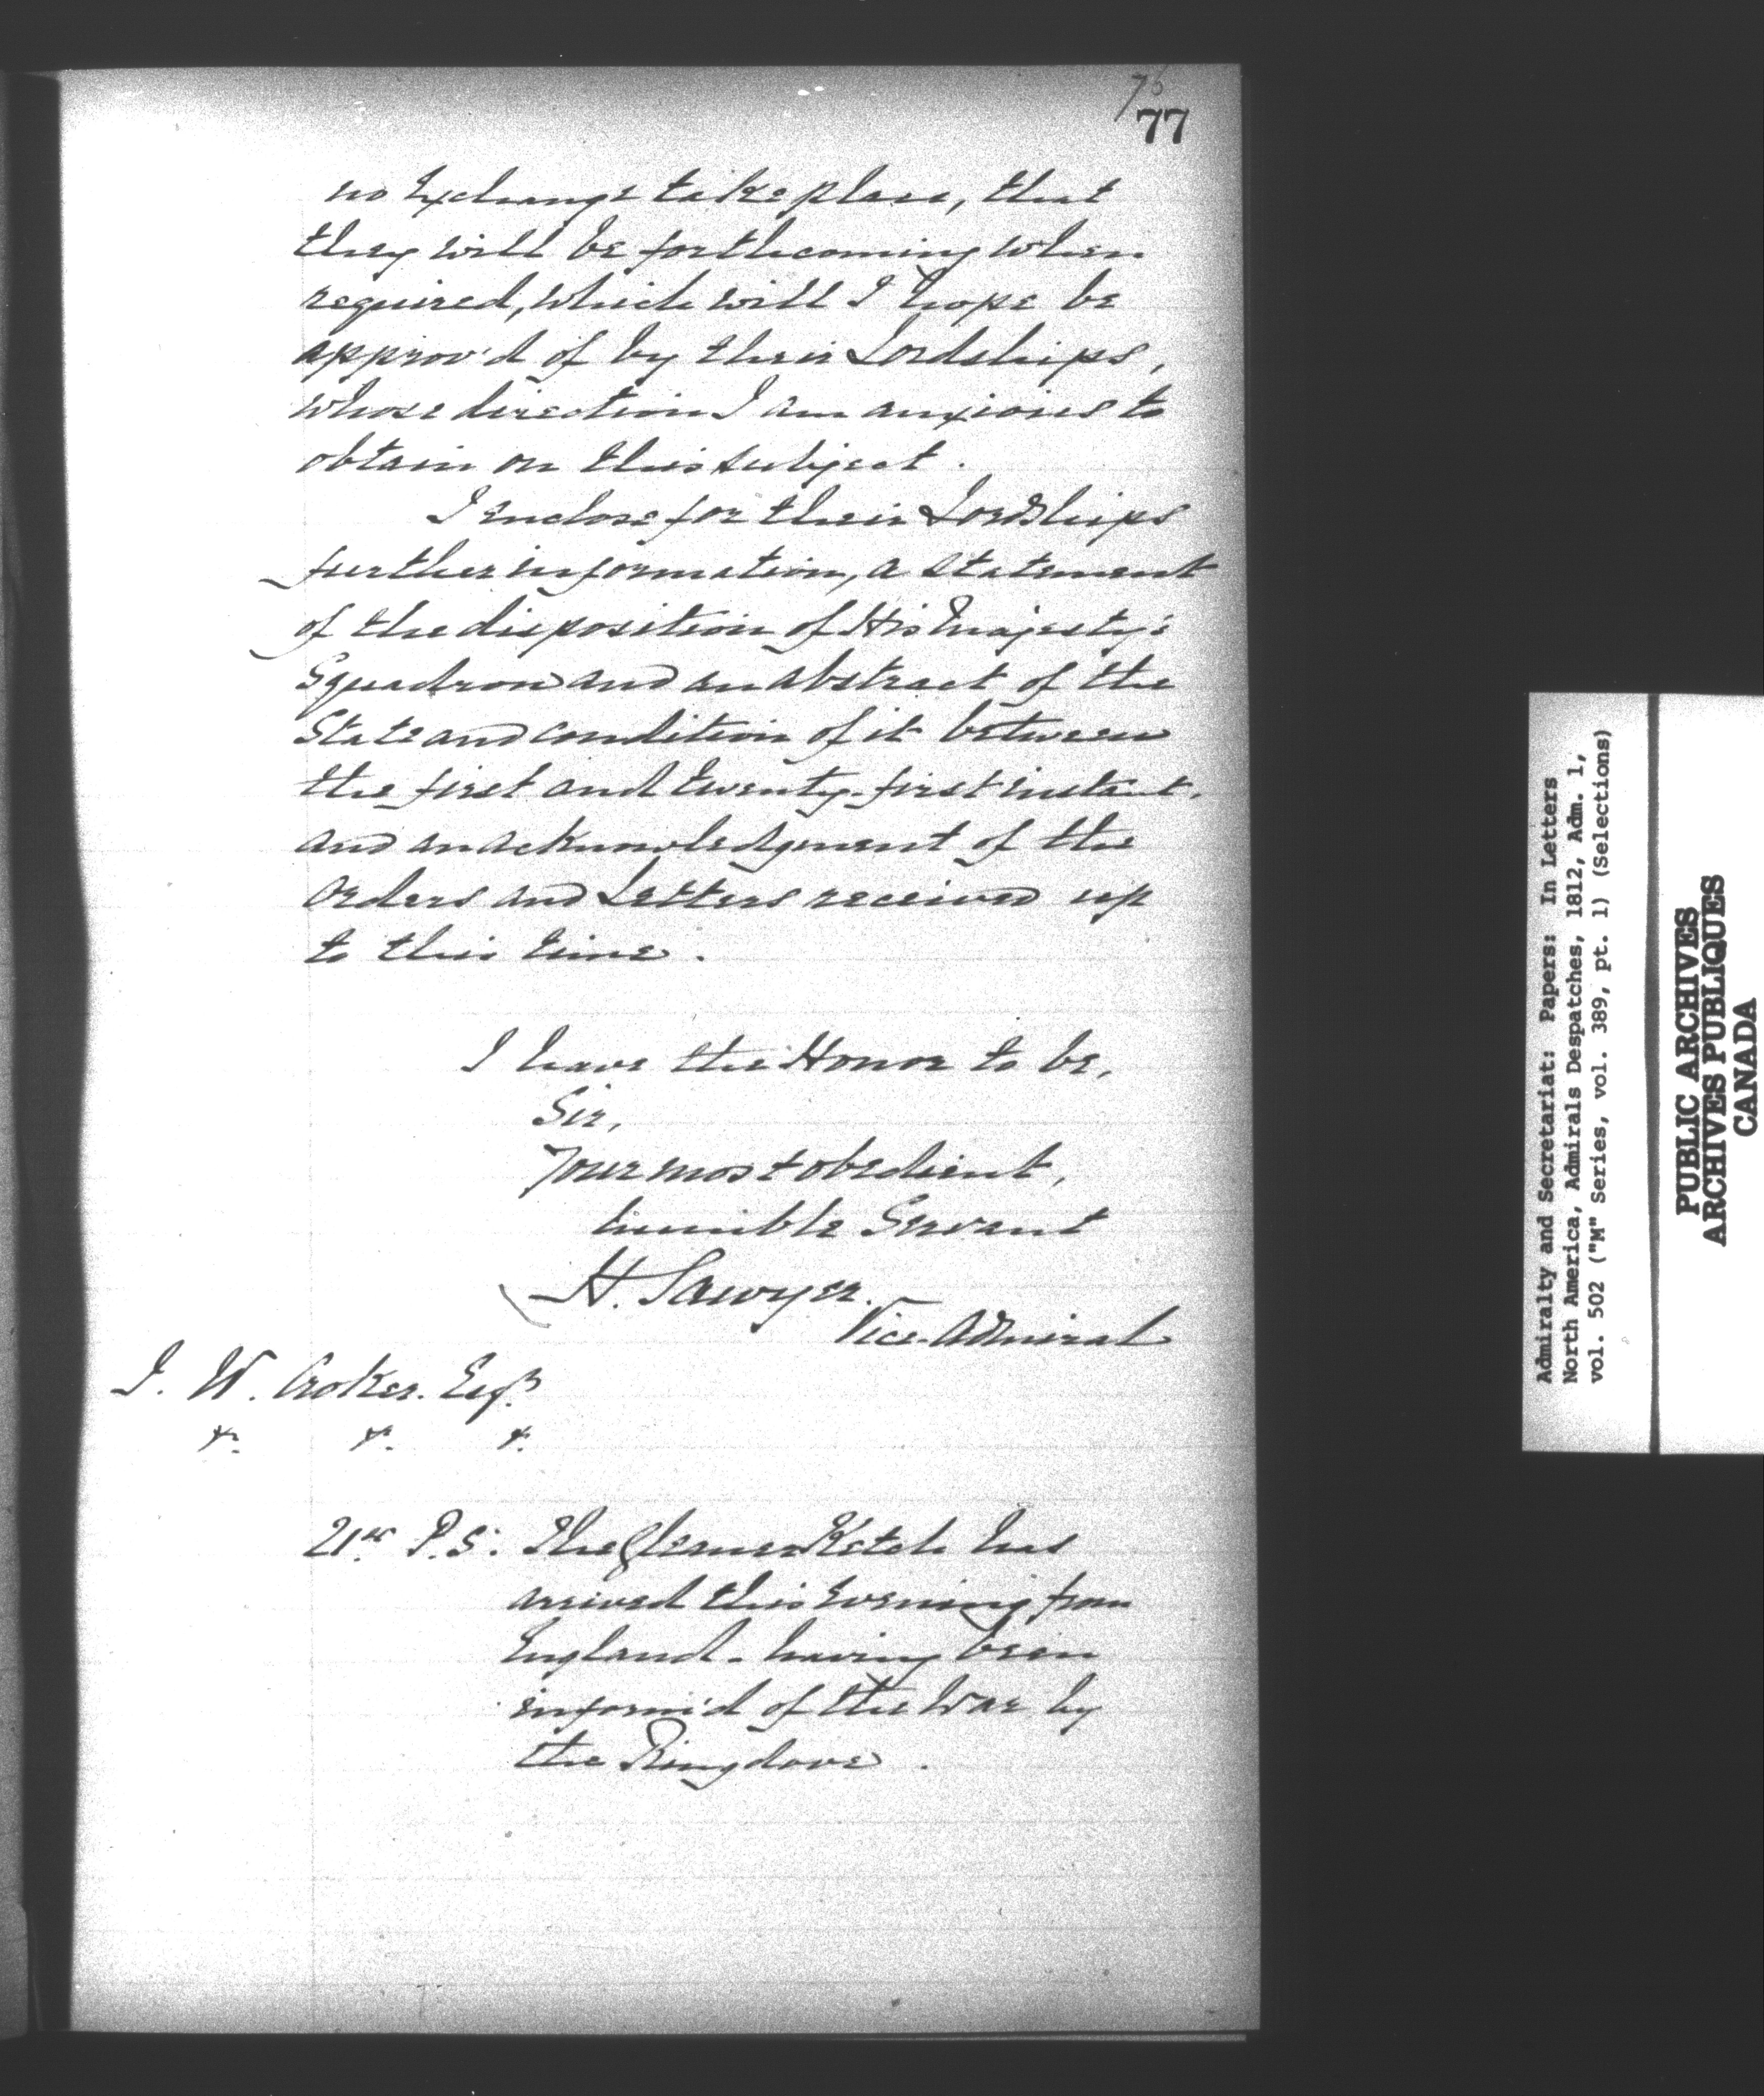 76
77
no Exchange take place, that
they will be forthcoming when
required, which will I hope be
approv'd of by their Lordships,
whose direction I am anxious to
obtain on this subject.
I enclose for their Lordships
further information, a statement
of the disposition of His Majesty's
Squadron and an abstract of the
State and condition of it between
the first and twenty-first instant.
and an acknowledgement of the
orders and Letters received up
to this time.
I have the Honor to be,
Sir,
Your most obedient,
humble Servant
H. Sawyer.
Vice-Admiral
J. W. Croker. Esqr.
&c. &c. &c.
21st P.S. The Gleaner Ketch has
arrived this Evening from
England - having been
inform'd of the War by
the Ringdove.
Admiralty and Secretariat: Papers: In Letters
North America, Admirals Despatches, 1812, Adm. 1,
vol. 502 ("M" Series, vol. 389, pt. 1) (Selections)
PUBLIC ARCHIVES
ARCHIVES PUBLIQUES
CANADA